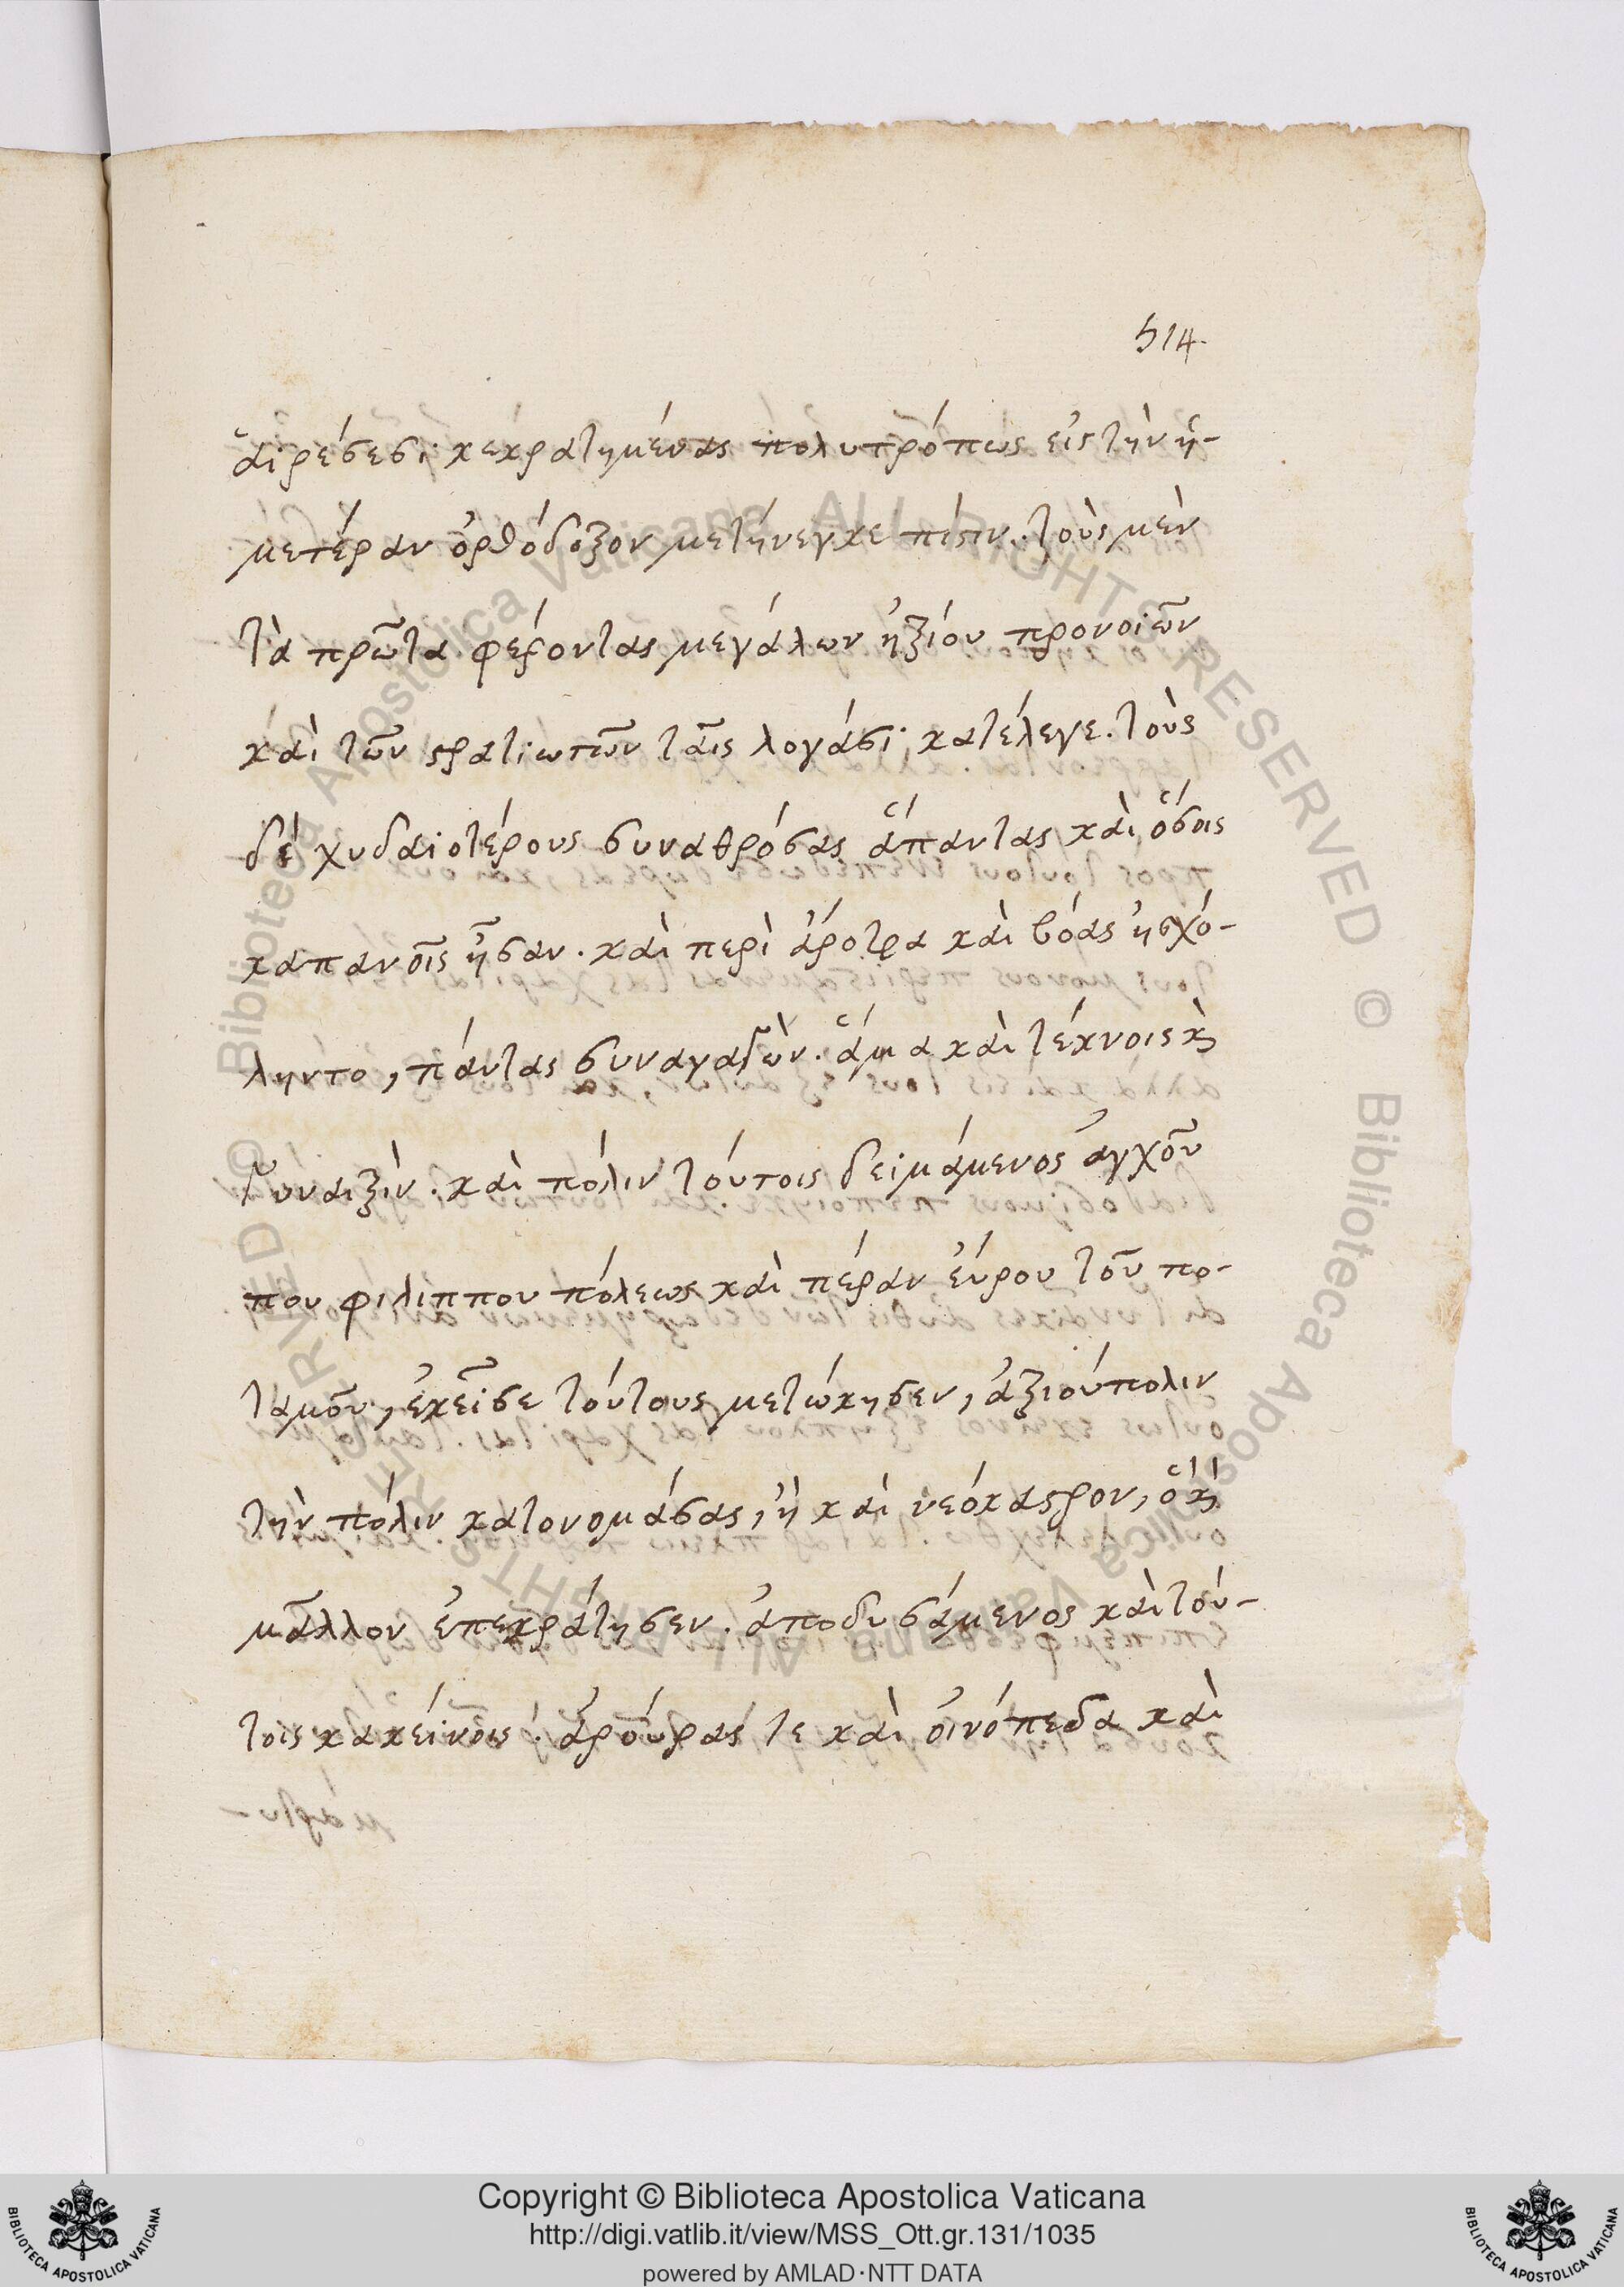 514.
ἁιρέσεσι κεκρατημένας πολυτρόπως εἰς τὴν ἡ-
μετέραν ὀρθόδοξον μετήνεγκε πίστιν. τοὺς μὲν
τὰ πρῶτα φέροντας μεγάλων ἠξίου προνοιῶν
κὰι τῶν στρατιωτῶν τᾶις λογάσι κατέλεγε. τοὺς
δὲ χυδαιοτέρους συναθρόσας ἅπαντας κὰι ὅσοις
καπανοῖς ἦσαν. κὰι περὶ ἄροτρα κὰι βόας ἠσχό-
ληντο, πάντας συναγαγὼν. ἅμα κὰι τέκνοις κὰι
γυναιξὶν. κὰι πόλιν τόυτοις δειμάμενος ἀγχοῦ
που φιλιππου πόλεως κὰι πέραν ἐύρου τοῦ πο-
ταμοῦ, ἐκεῖσε τόυτους μετώκησεν, ἀξιούπολιν
τὴν πόλιν κατονομάσας, ἢ κὰι νεόκαστρον, ὃ κὰι
μᾶλλον ἐπεκράτησεν. ἀποδυσάμενος κὰι τόυ-
τοις κακείνοις. ἀρόυρας τε κὰι ὀινόπεδα κὰι
Copyright © Biblioteca Apostolica Vaticana
http://digi.vatlib.it/view/MSS_Ott.gr.131/1035
powered by AMLAD·NTT DATA
BIBLIOTECA APOSTOLICA VATICANA
BIBLIOTECA APOSTOLICA VATICANA